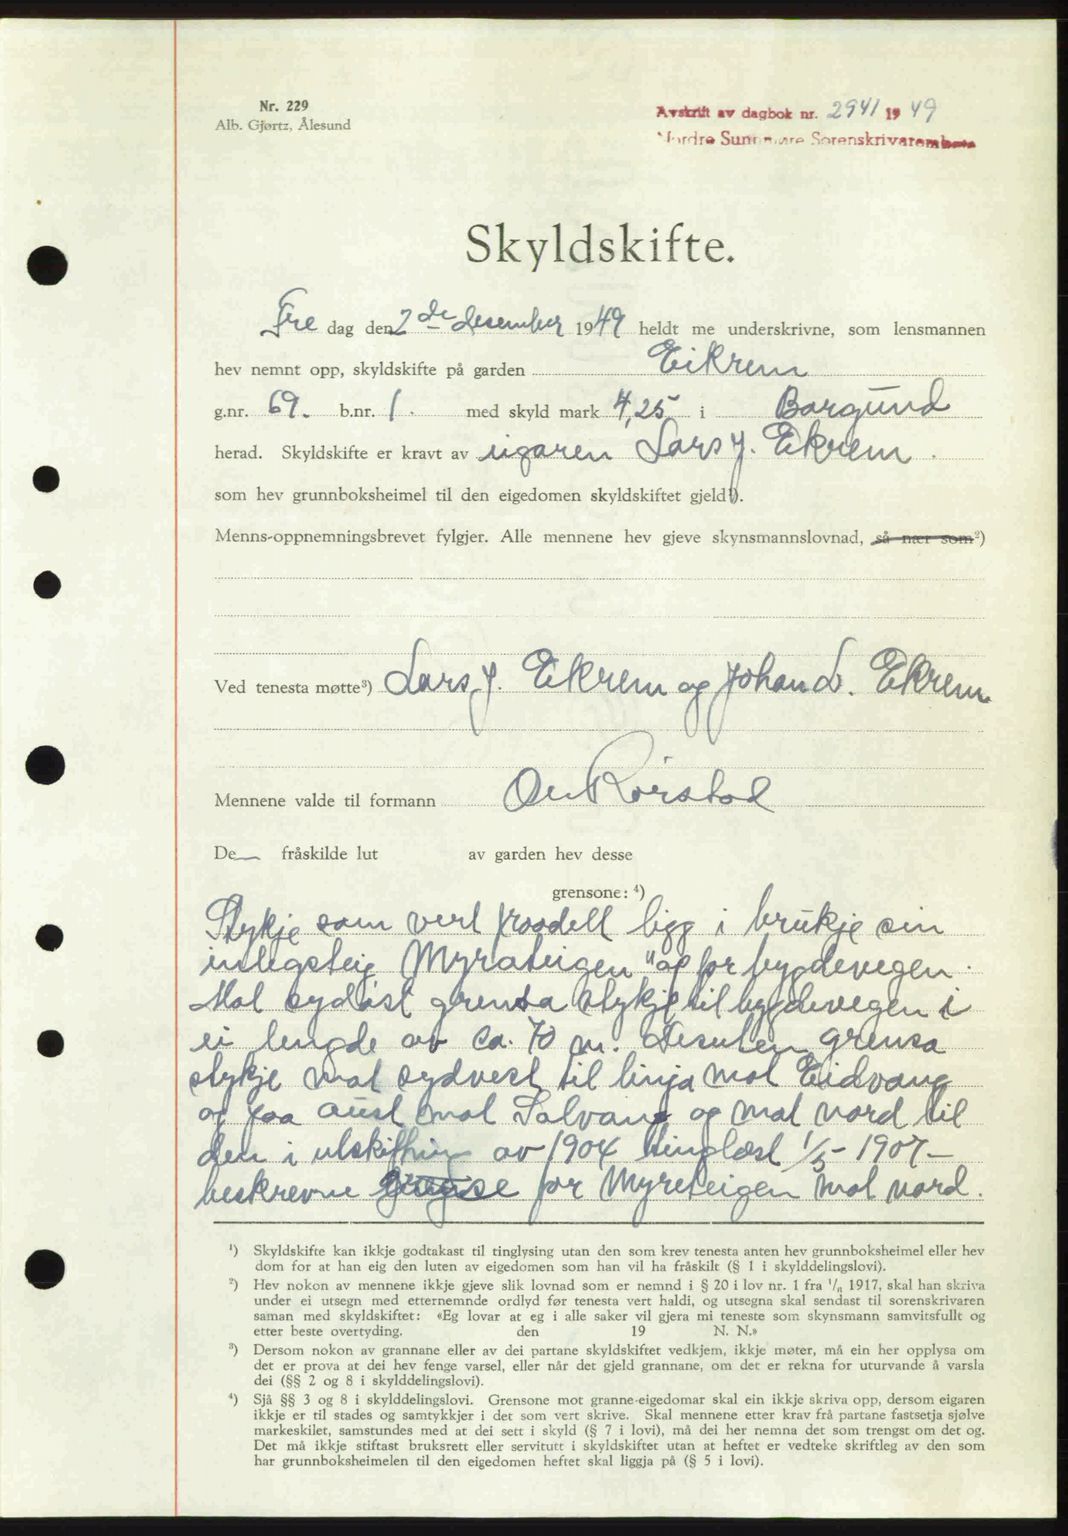 Nr. 229
Alb. Gjørtz, Ålesund
Avskrift av dagbok nr. 2941 1949
Nordre Sunnmøre Sorenskrivarembete
Skyldskifte.
Fre dag den 2de desember 1949 heldt me underskrivne, som lensmannen
hev nemnt opp, skyldskifte på garden Eikrem
g.nr. 69. b.nr. 1. med skyld mark 4,25 i Borgund
herad. Skyldskifte er kravt av eigaren Lars J. Eikrem.
som hev grunnboksheimel til den eigedomen skyldskiftet gjeld¹).
Menns-oppnemningsbrevet fylgjer. Alle mennene hev gjeve skynsmannslovnad, så nær som²)
Ved tenesta møtte³) Lars J. Eikrem og Johan L. Eikrem
Mennene valde til formann Ole Rørstad
De fråskilde lut av garden hev desse
grensone: ⁴)
Stykje som vert fraadelt ligg i brukje sin
inlegsteig Myrateigen" op for bygdevegen.
Mot sydøst grensa stykje til bygdevegen i
ei lengde av ca. 70 m. Desuten grensa
stykje mot sydvest til linja mot Eidvang
og paa aust mot Solvang og mot nord til
den i utskifting av 1904 tinglæst 1/5-1907-
beskrevne for Myreteigen mot nord.
¹) Skyldskifte kan ikkje godtakast til tinglysing utan den som krev tenesta anten hev grunnboksheimel eller hev
dom for at han eig den luten av eigedomen som han vil ha fråskilt (§ 1 i skylddelingslovi).
²) Hev nokon av mennene ikkje gjeve slik lovnad som er nemnd i § 20 i lov nr. 1 fra 1/8 1917, skal han skriva
under ei utsegn med etternemnde ordlyd før tenesta vert haldi, og utsegna skal sendast til sorenskrivaren
saman med skyldskiftet: «Eg lovar at eg i alle saker vil gjera mi teneste som skynsmann samvitsfullt og
etter beste overtyding. den 19 N. N.»
³) Dersom nokon av grannane eller av dei partane skyldskiftet vedkjem, ikkje møter, må ein her opplysa om
det er prova at dei hev fenge varsel, eller når det gjeld grannane, om det er rekna for uturvande å varsla
dei (§§ 2 og 8 i skylddelingslovi).
⁴) Sjå §§ 3 og 8 i skylddelingslovi. Grensone mot granne-eigedomar skal ein ikkje skriva opp, dersom eigaren
ikkje er til stades og samtykkjer i det som vert skrive. Skal mennene etter krav frå partane fastsetja sjølve
markeskilet, samstundes med at dei sett i skyld (§ 7 i lovi), må dei her nemna det som trengst om det og.
Det må ikkje stiftast bruksrett eller servitutt i skyldskiftet utan at heftet er vedteke skriftleg av den som
har grunnboksheimelen til den eigedomen heftet skal liggja på (§ 5 i lovi).